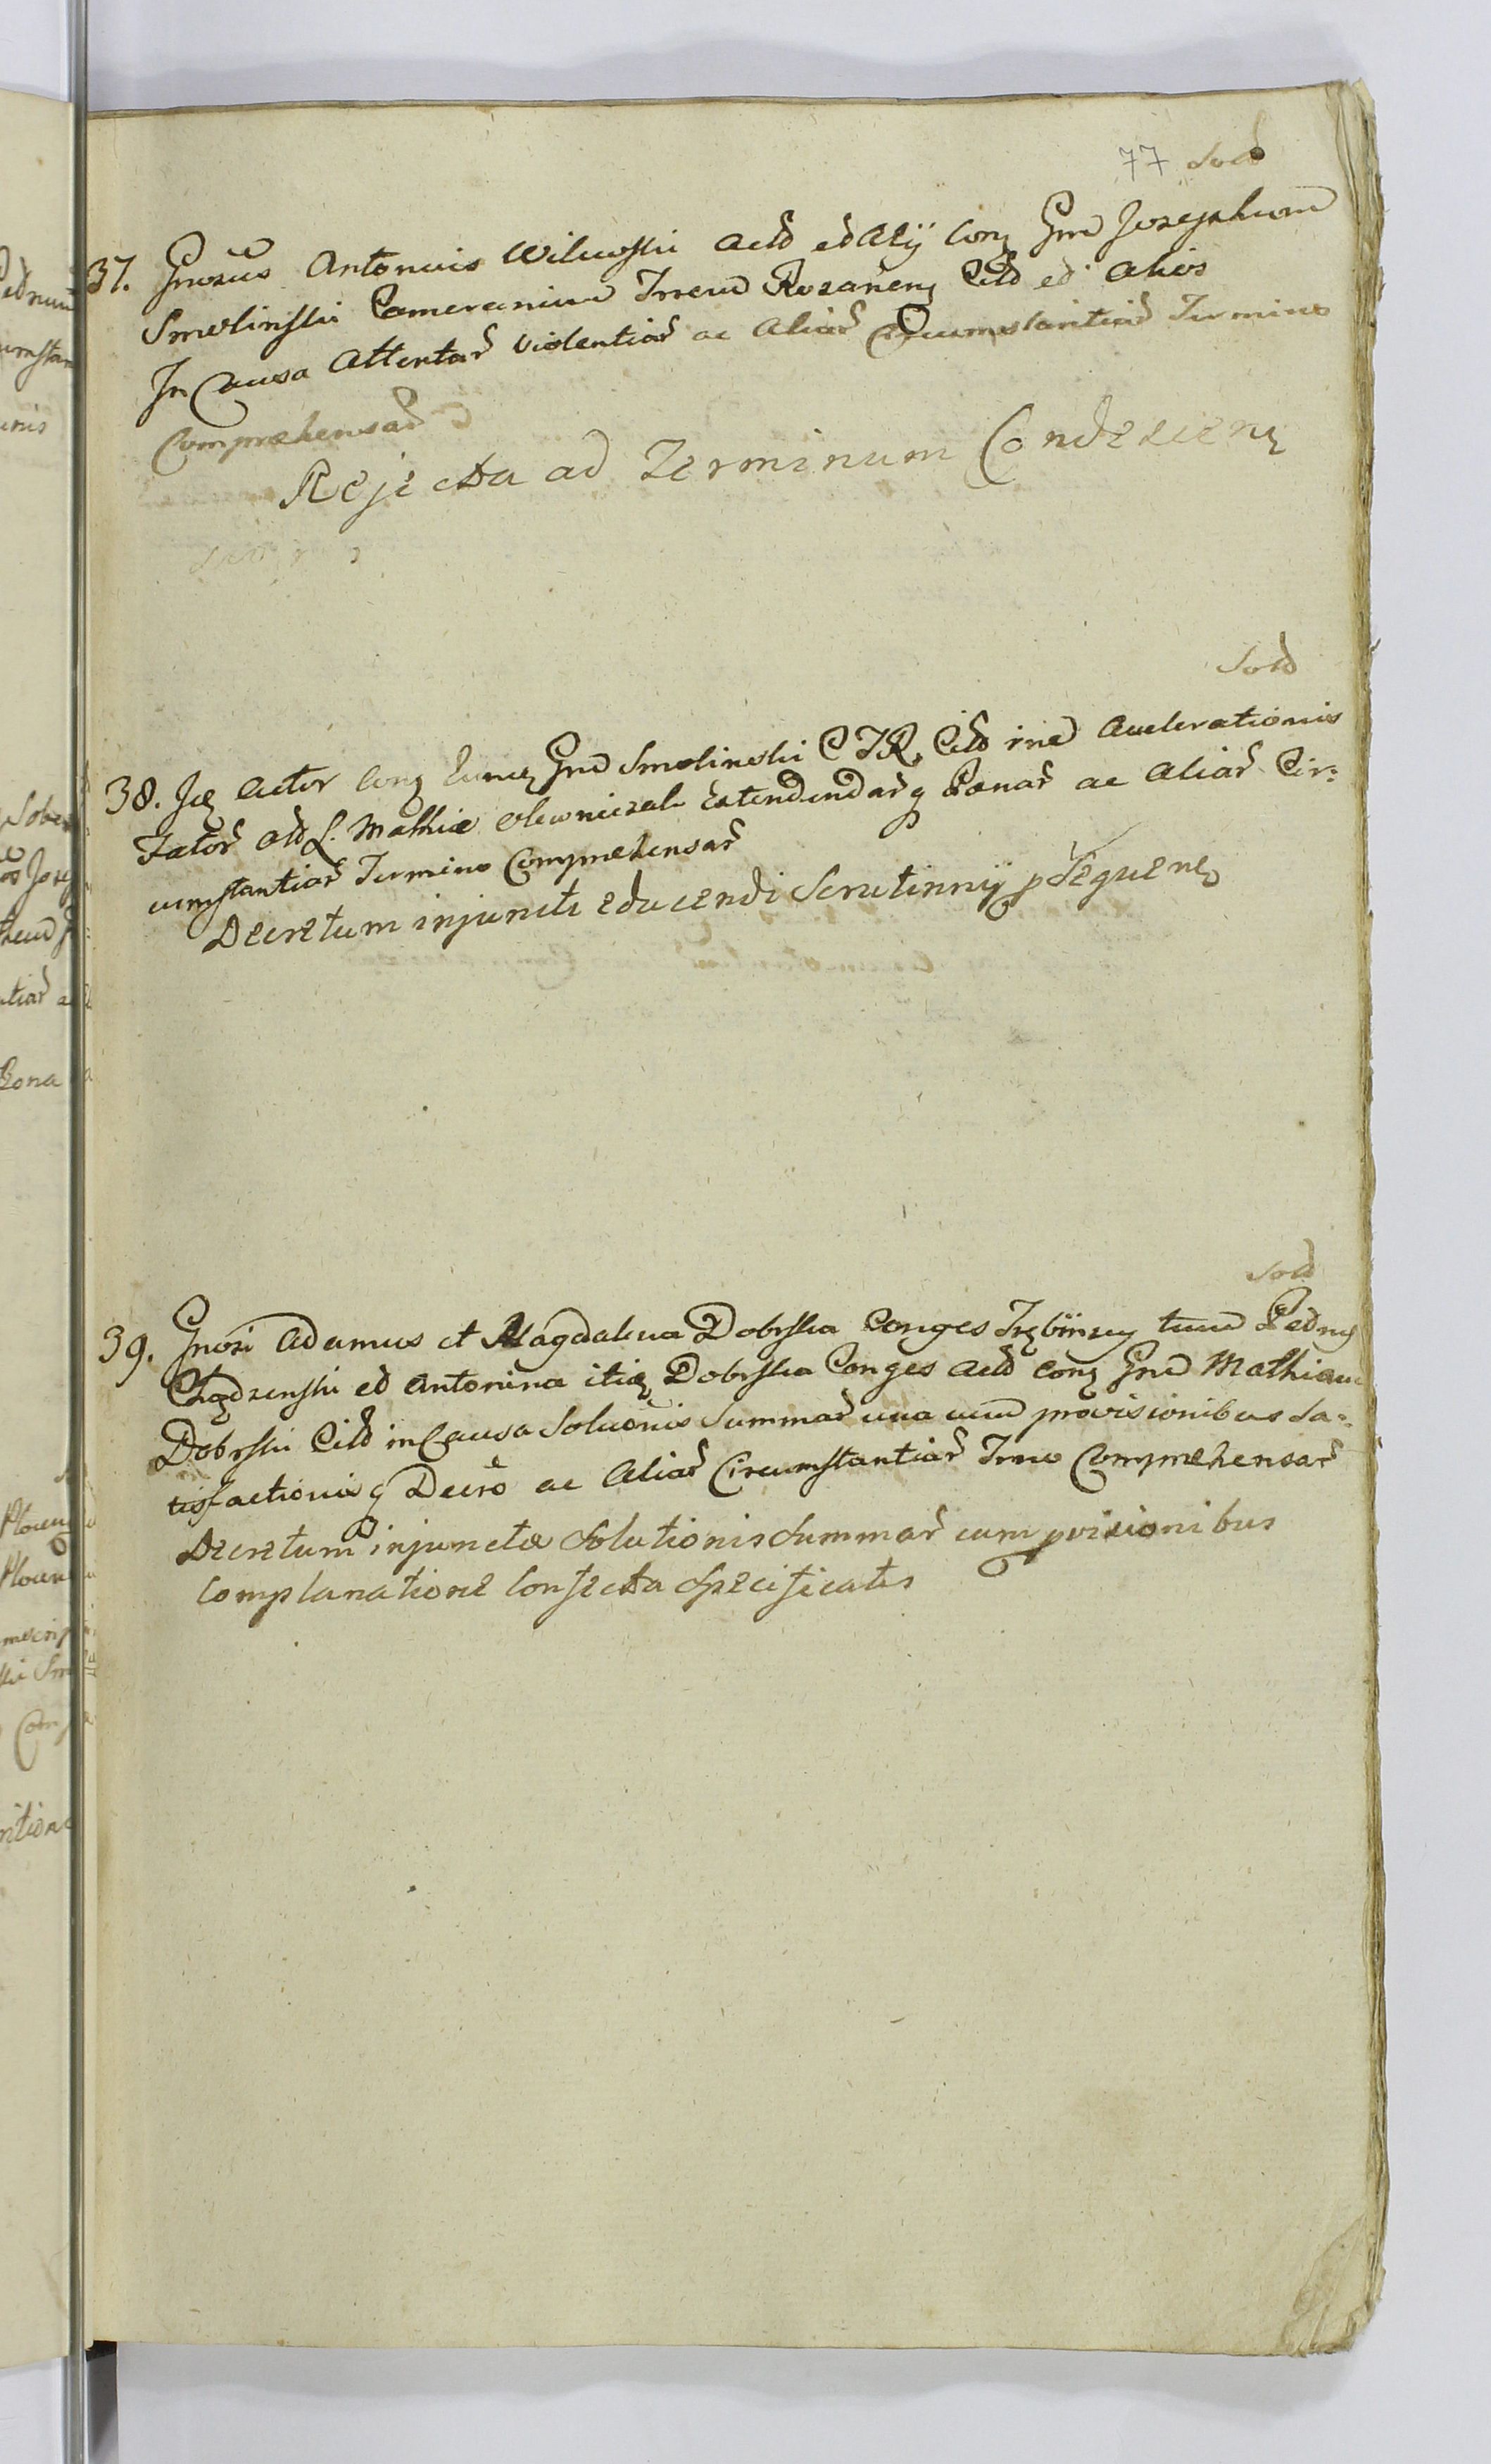 77 Sold
37. Gnosus Antonius Wilwoski Actd ed Alij Conq Gnd Josephum
Smolinski Camerarium Trrem Rozanenq Citd ed Alios
In Causa Attentar Violentiar ac Aliar Circumstantiar Termino
Comprehensar
Rejecta ad Terminum Condescenq
Sold
38. Jeq Actor Conq Eumq Gnd Smolinski C T R, Citd rne Accelerationis
Fator olf L. Mathiæ Extendendarq Pænar ac Aliar Cir:
cumstantiar Termino Comprehensar
Decretum injuncti educendi Scrutinnij pseguenq
Sold
39. Gnosi Adamus et Magdalena Dobrska Conges tum
ed Antonina itiq Dobrska Conges Actd Conq Gnd Mathiam
Dobrski Citd in Causa Soluonis Summar una cum provisionibus Sa:
tisfactionisq Decro ac Aliar Circumstantiar Trno Comprehensar
Decretum injunctæ Solutionis Summar cum pvisionibus
Complanatione Confecta Specificatis